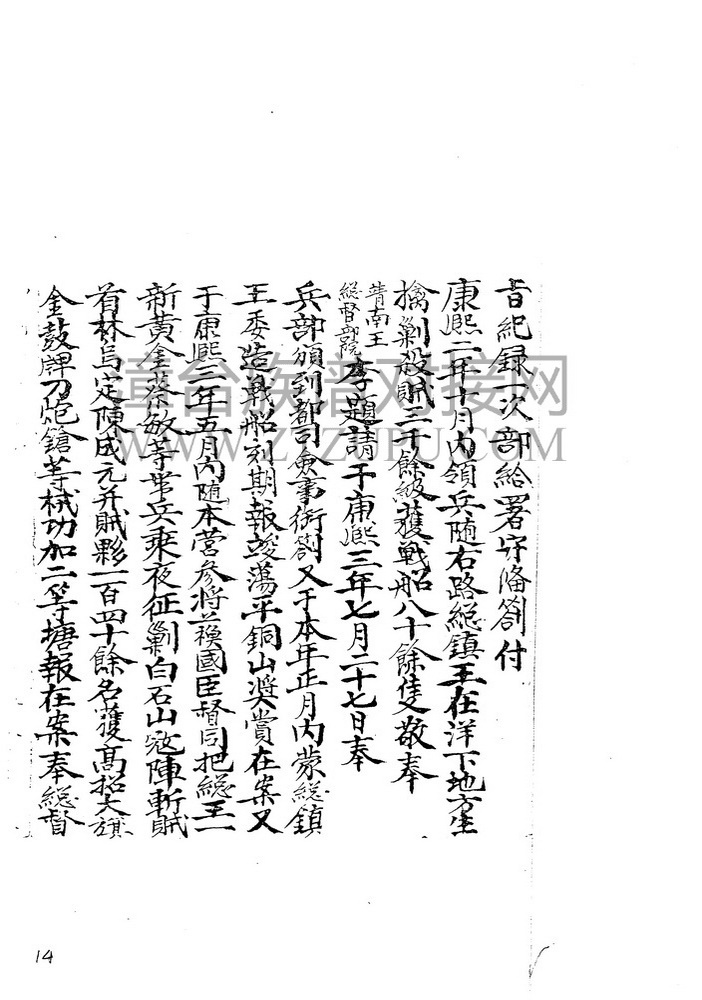 旨紀録一次部給署守俻劄付
康熙二年十月內領兵随右路総鎮王在洋下地方生
擒剿殺賊三千餘級獲戦船八十餘隻敬奉
靖南王
総督部院李題請于康熙三年七月二十七日奉
兵部頒到都司僉事銜劄又于本年正月內蒙総鎮
王委造戦船刻期報竣蕩平銅山奨賞在案又
于康熙三年五月內随本营参将國臣督同把総王一
新黄金蔡敏等带兵乘夜征剿白石山寇陣斬賊
首林烏定陳成元并賊夥一百四十餘名獲髙招大旗
金鼓牌刀炮鎗等械功加二等塘報在案奉総督
漳台族谱对接网
WWW.ZTZUPU.COM
14